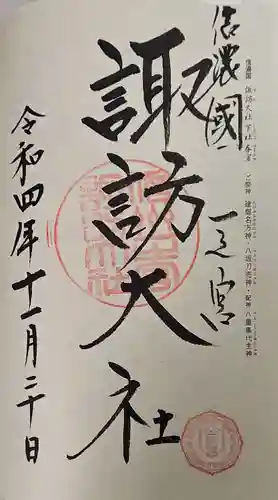 信濃国 諏訪大社 下社 春宮
ご祭神 建御名方神・八坂刀売神・配神 八重事代主神
信濃國
一之宮
諏訪大社
令和四年十一月二十日